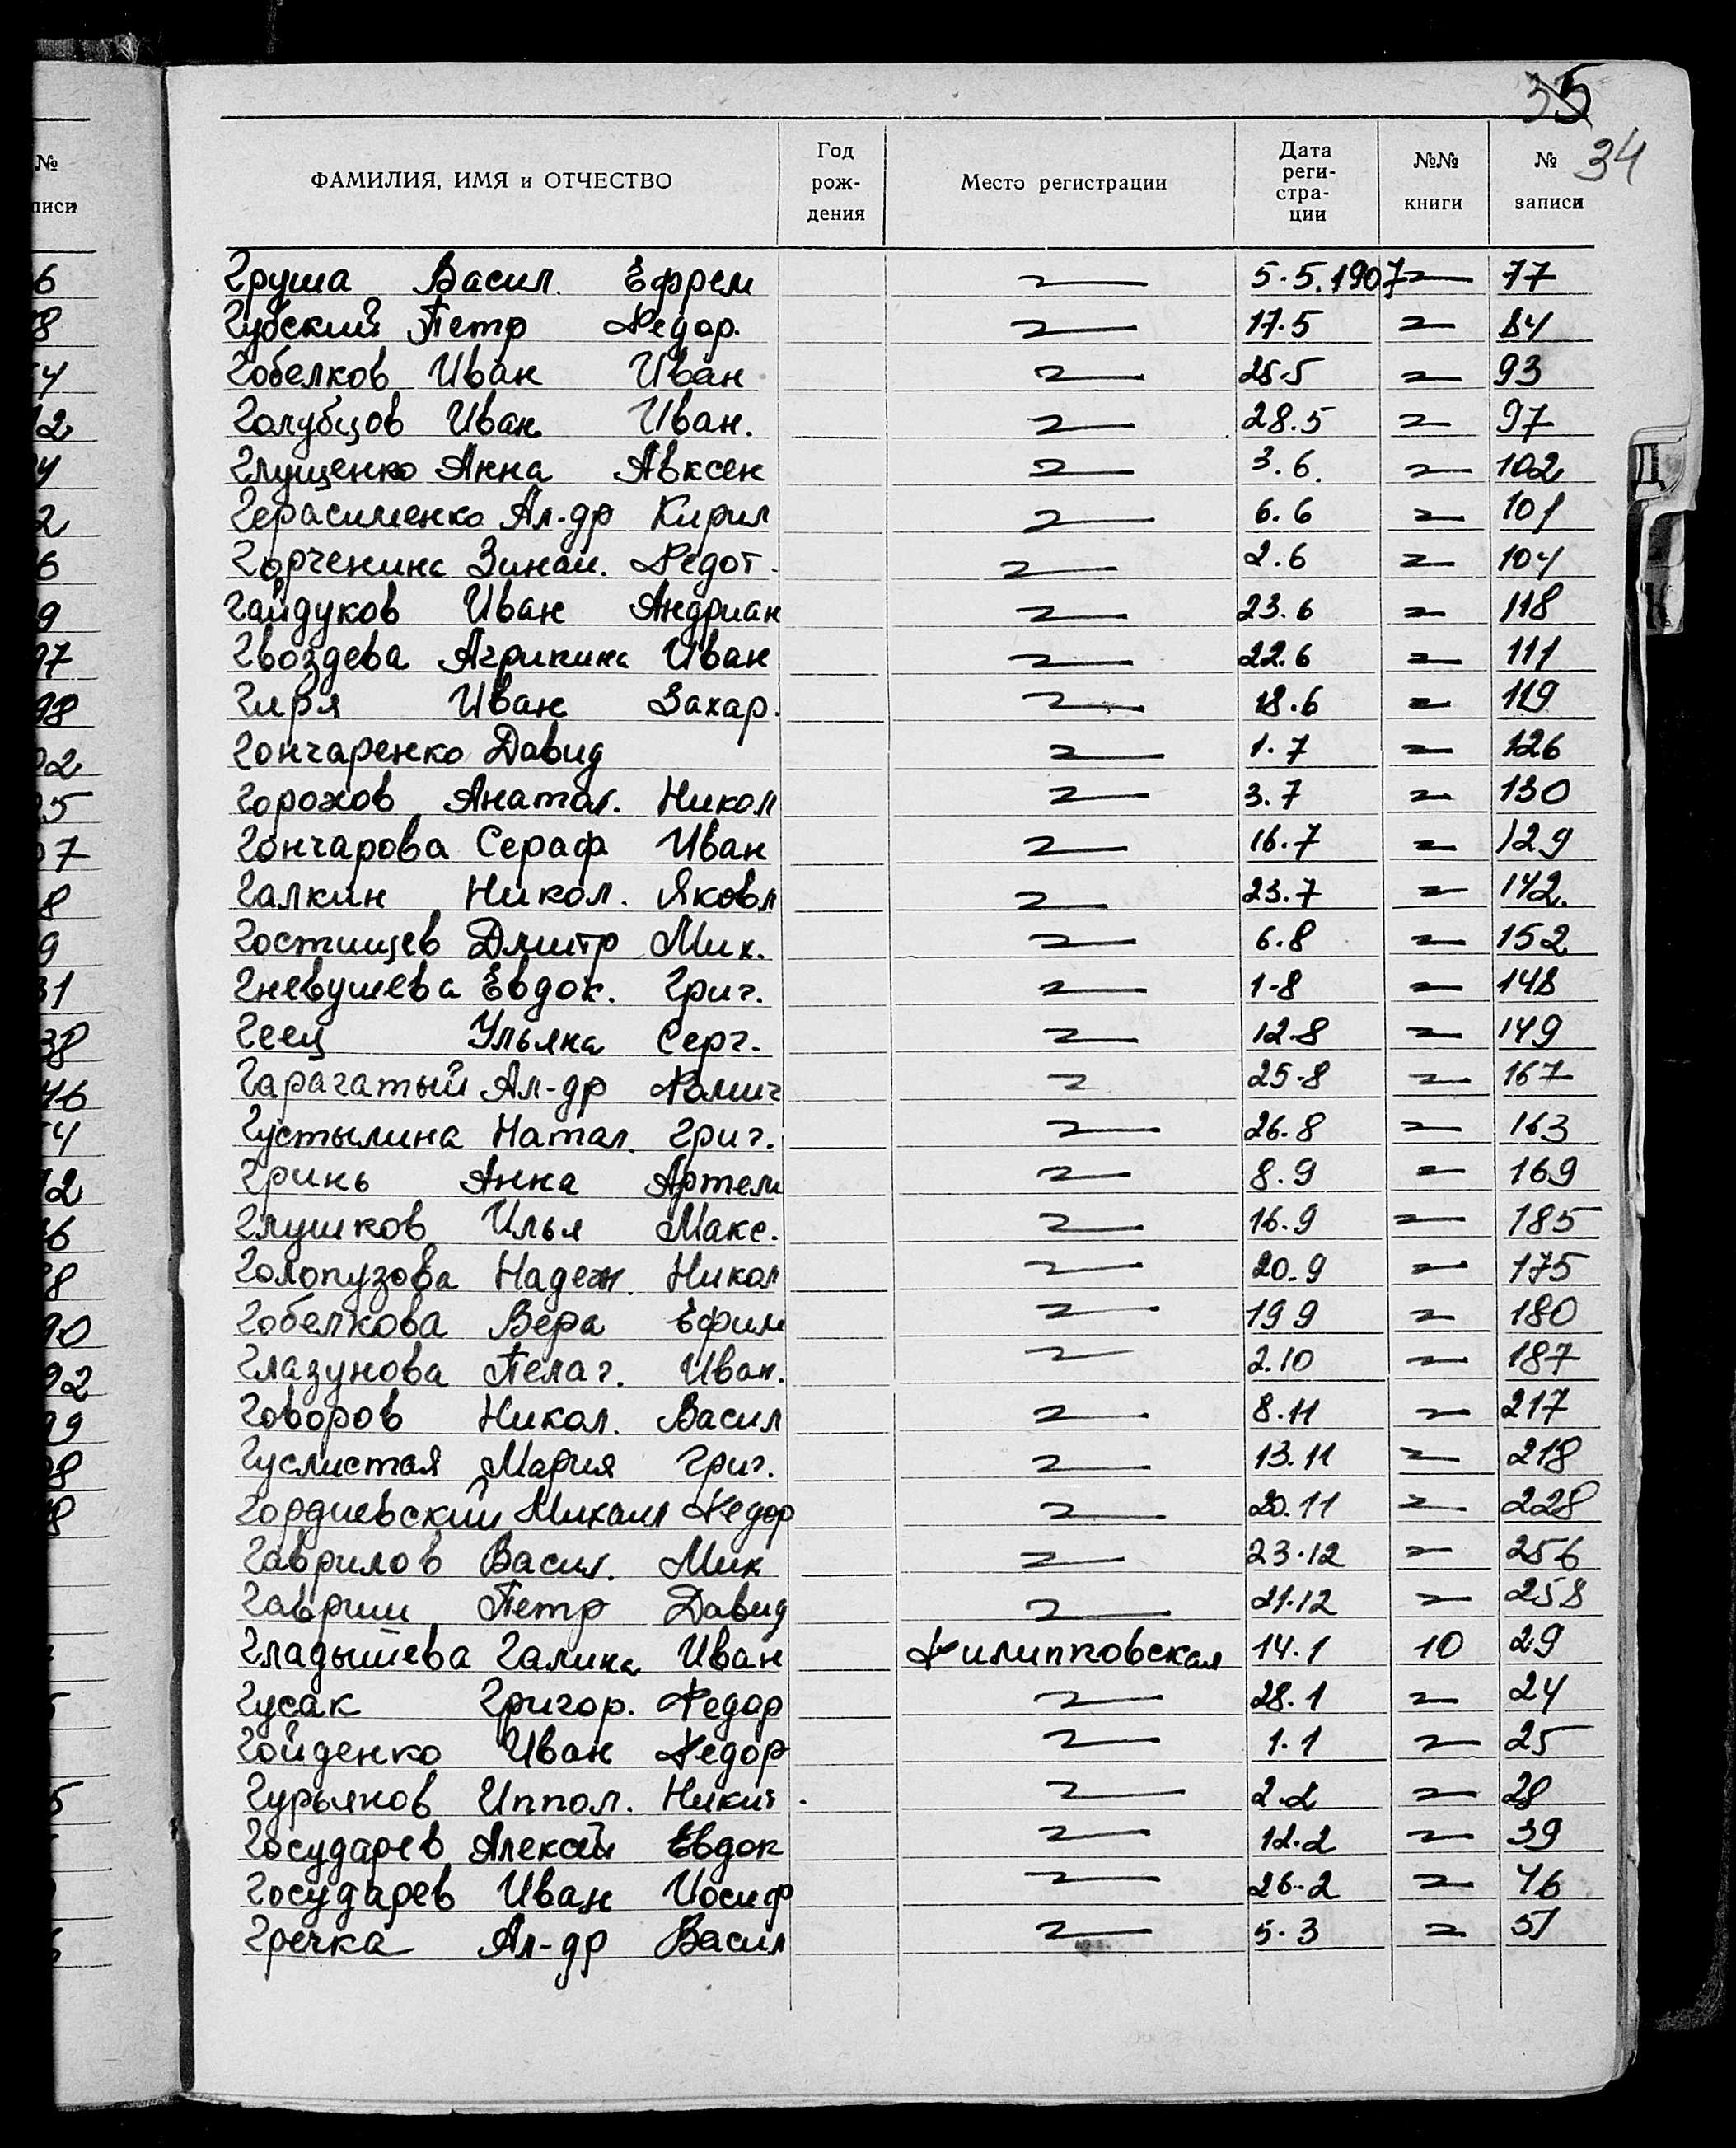 35
34
ФАМИЛИЯ, ИМЯ и ОТЧЕСТВО Год рождения Место регистрации Дата регистрации №№ книги № записи
Груша Васил. Ефрем — 5.5.1907 — 77
Губский Петр Федор. — 17.5 — 84
Гобелков Иван Иван — 25.5 — 93
Голубцов Иван Иван. — 28.5 — 97
Глущенко Анна Авксен — 3.6. — 102
Герасименко Ал-др Кирил — 6.6 — 101
Горченина Зинаи. Федот. — 2.6 — 104
Гайдуков Иван Андриан — 23.6 — 118
Гвоздева Агрипина Иван — 22.6 — 111
Гиря Иван Захар. — 18.6 — 119
Гончаренко Давид — 1.7 — 126
Горохов Анатол. Никол — 3.7 — 130
Гончарова Сераф Иван — 16.7 — 129
Галкин Никол. Яковл — 23.7 — 142.
Гостищев Дмитр Мих. — 6.8 — 152
Гневушева Евдок. Григ. — 1-8 — 148
Геец Ульяна Серг. — 12.8 — 149
Гарагатый Ал-др Фомич — 25-8 — 167
Густылина Натал. Григ. — 26.8 — 163
Гринь Анна Артем — 8.9 — 169
Глушков Илья Макс. — 16.9 — 185
Голопузова Надеж. Никол — 20.9 — 175
Гобелкова Вера Ефим — 19 9 — 180
Глазунова Пелаг. Иван. — 2.10 — 187
Говоров Никол. Васил — 8.11 — 217
Гуслистая Мария Григ. — 13.11 — 218
Гордиевский Михаил Федор — 20.11 — 228
Гаврилов Васил. Мих — 23.12 — 256
Гавриш Петр Давид — 21.12 — 258
Гладышева Галина Иван Филипповская 14.1 10 29
Гусак Григор. Федор — 28.1 — 24
Гойденко Иван Федор — 1.1 — 25
Гурьянов Иппол. Никит. — 2.2 — 28
Государев Алексей Евдок — 12.2 — 39
Государев Иван Иосиф — 26.2 — 46
Гречка Ал-др Васил — 5.3 — 51
Д
К